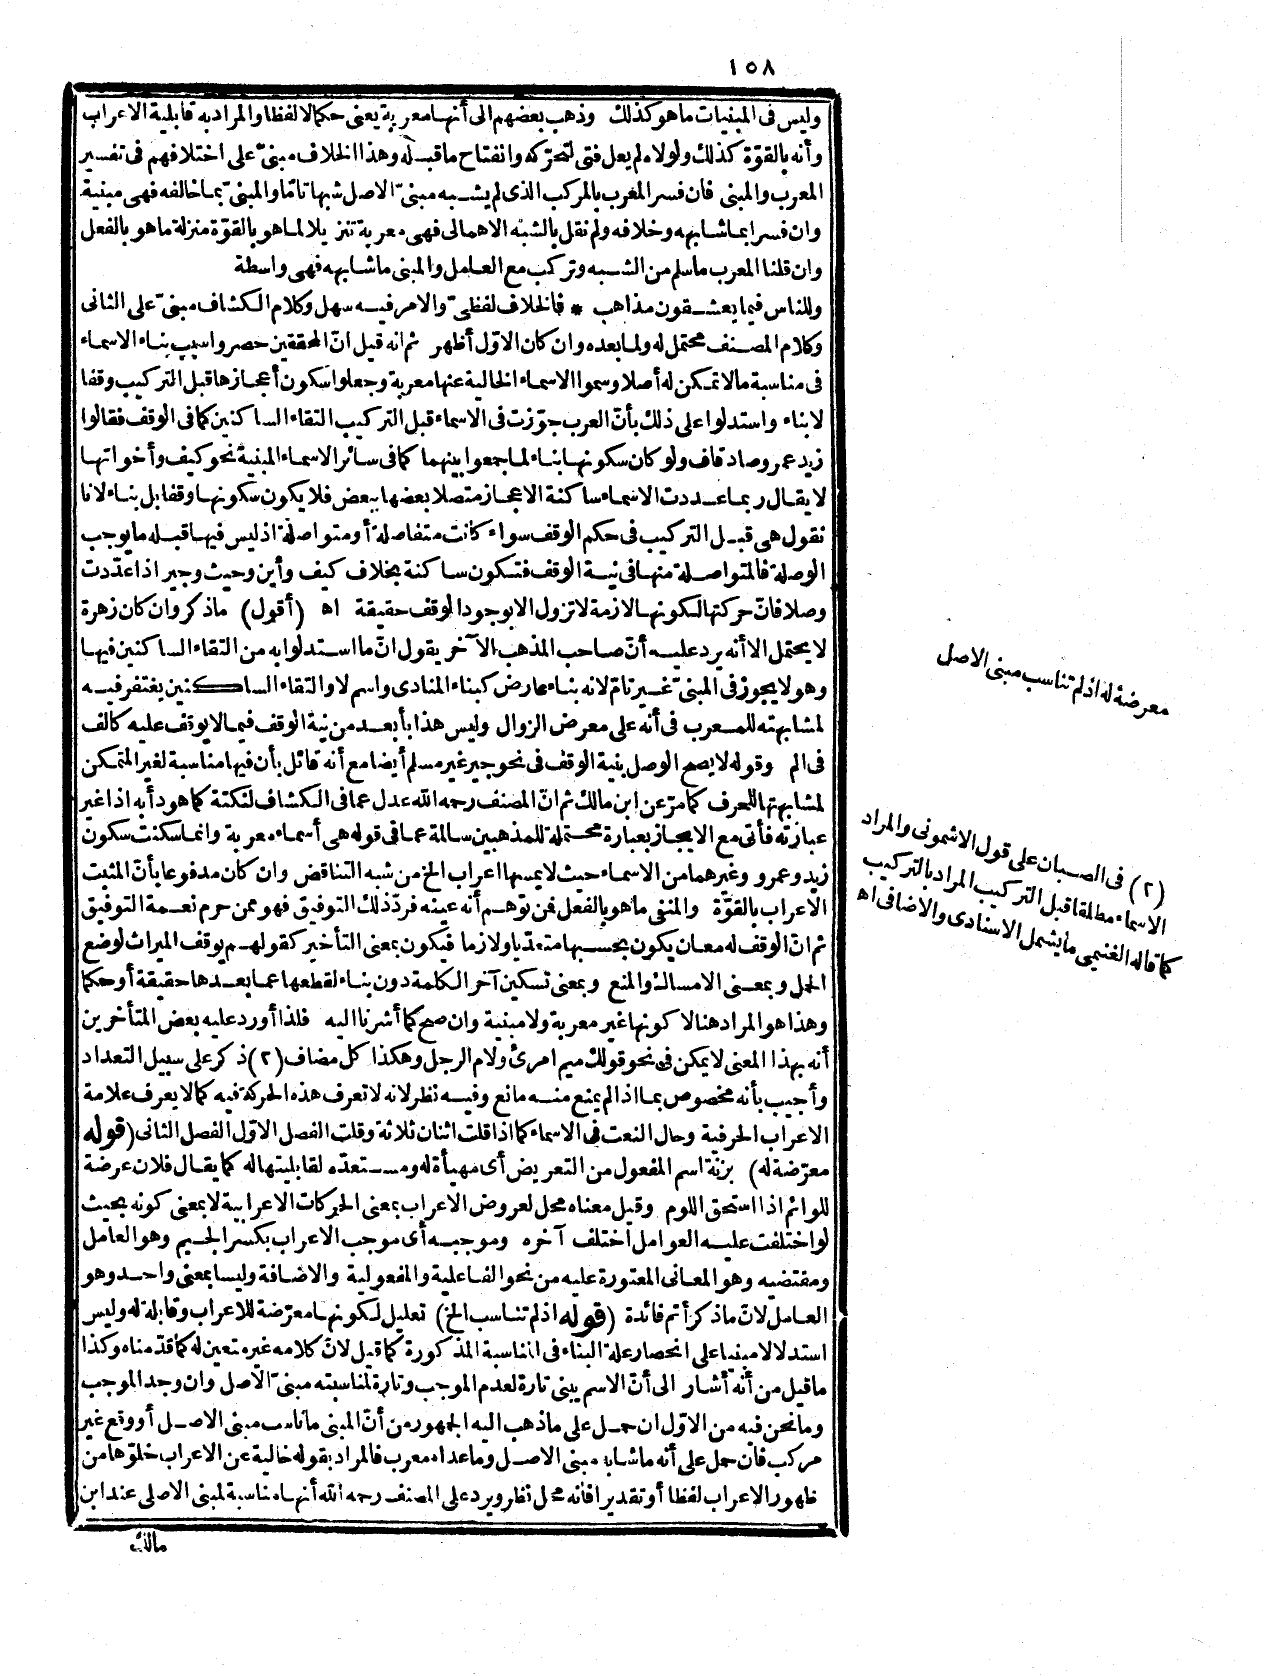 ١٥٨
وليس فى المبنيات ما هو كذلك وذهب بعضهم الى أنها معربة يعنى حكما لا لفظا والمراد به قابلية الاعراب
وأنه بالقوّة كذلك ولولاه لم يعل فتى لتحرّكه وانفتاح ما قبله وهذا الخلاف مبنىّ على اختلافهم فى تفسير
المعرب والمبنى فان فسر المعرب بالمركب الذى لم يشبه مبنىّ الاصل شبها تامّا والمبنىّ بما خالفه فهى مبنية
وان فسرا بما شابهه وخلافه ولم نقل بالشبه الاهمالى فهى معربة تنزيلا لما هو بالقوّة منزلة ما هو بالفعل
وان قلنا المعرب ما سلم من الشبه وتركب مع العامل والمبنى ما شابهه فهى واسطة
وللناس فيما يعشقون مذاهب * فالخلاف لفظىّ والامر فيه سهل وكلام الكشاف مبنىّ على الثانى
وكلام المصنف محتمل له ولما بعده وان كان الاوّل أظهر ثم انه قيل انّ المحققين حصروا سبب بناء الاسماء
فى مناسبة ما لا تمكن له أصلا وسموا الاسماء الخالية عنها معربة وجعلوا سكون أعجازها قبل التركيب وقفا
لا بناء واستدلوا على ذلك بأنّ العرب جوّزت فى الاسماء قبل التركيب التقاء الساكنين كما فى الوقف فقالوا
زيد عمرو صاد قاف ولو كان سكونها بناء لما جمعوا بينهما كما فى سائر الاسماء المبنية نحو كيف وأخواتها
لا يقال ربما عددت الاسماء ساكنة الاعجاز متصلا بعضها ببعض فلا يكون سكونها وقفا بل بناء لانا
نقول هى قبل التركيب فى حكم الوقف سواء كانت متفاصلة أو متواصلة اذ ليس فيها قبله ما يوجب
الوصلة فالمتواصلة منها فى نية الوقف فتكون ساكنة بخلاف كيف وأين وحيث وجير اذا عدّدت
وصلا فانّ حركتها لكونها لازمة لا تزول الا بوجود الوقف حقيقة اه (أقول) ما ذكر وان كان زهرة
لا يحتمل الا أنه يرد عليه أنّ صاحب المذهب الآخر يقول انّ ما استدلوا به من التقاء الساكنين فيها
وهو لا يجوز فى المبنىّ غير تامّ لانه بناء عارض كبناء المنادى واسم لا والتقاء الساكنين يغتفر فيه
لمشابهته للمعرب فى أنه على معرض الزوال وليس هذا بأبعد من نية الوقف فيما لا يوقف عليه كالف
فى الم وقوله لا يصح الوصل بنية الوقف فى نحو جير غير مسلم أيضا مع أنه قائل بأن فيها مناسبة لغير المتمكن
لمشابهتها للحرف كما مرّ عن ابن مالك ثم انّ المصنف رحمه الله عدل عما فى الكشاف لنكتة كما هو دأبه اذا غير
عبارته فأتى مع الايجاز بعبارة محتملة للمذهبين سالمة عما فى قوله هى أسماء معربة وانما سكنت سكون
زيد وعمرو وغيرهما من الاسماء حيث لا يمسها اعراب الخ من شبه التناقض وان كان مدفوعا بأنّ المثبت
الاعراب بالقوّة والمنفى ما هو بالفعل فمن توهم أنه عينه فردّ ذلك التوفيق فهو ممن حرم نعمة التوفيق
ثم انّ الوقف له معان يكون بحسبها متعدّيا ولازما فيكون بمعنى التأخير كقولهم يوقف الميراث لوضع
الحمل وبمعنى الامساك والمنع وبمعنى تسكين آخر الكلمة دون بناء لقطعها عما بعدها حقيقة أو حكما
وهذا هو المراد هنا لا كونها غير معربة ولا مبنية وان صح كما أشرنا اليه فلذا أورد عليه بعض المتأخرين
أنه بهذا المعنى لا يمكن فى نحو قولك ميم امرئ ولام الرجل وهكذا كل مضاف (٢) ذكر على سبيل التعداد
وأجيب بأنه مخصوص بما اذا لم يمنع منه مانع وفيه نظر لانه لا تعرف هذه الحركة فيه كما لا يعرف علامة
الاعراب الحرفية وحال النعت فى الاسماء كما اذا قلت اثنان ثلاثة وقلت الفصل الاوّل الفصل الثانى (قوله
معرّضة له) بزنة اسم المفعول من التعريض أى مهيأة له ومستعدّه لقابليتها له كما يقال فلان عرضة
للوائم اذا استحق اللوم وقيل معناه محل لعروض الاعراب بمعنى الحركات الاعرابية لا بمعنى كونه بحيث
لو اختلفت عليه العوامل اختلف آخره وموجبه أى موجب الاعراب بكسر الجيم وهو العامل
ومقتضيه وهو المعانى المعتورة عليه من نحو الفاعلية والمفعولية والاضافة وليسا بمعنى واحد وهو
العامل لانّ ما ذكر أتم فائدة (قوله اذ لم تناسب الخ) تعليل لكونها معرّضة للاعراب وقابلة له وليس
استدلالا مبنيا على انحصار علة البناء فى المناسبة المذكورة كما قيل لانّ كلامه غير متعين له كما قدّمناه وكذا
ما قيل من أنه أشار الى أنّ الاسم يبنى تارة لعدم الموجب وتارة لمناسبته مبنىّ الاصل وان وجد الموجب
وما نحن فيه من الاوّل ان حمل على ما ذهب اليه الجمهور من أنّ المبنى ما ناسب مبنى الاصل أو وقع غير
مركب فان حمل على أنه ما شابه مبنى الاصل وما عداه معرب فالمراد بقوله خالية عن الاعراب خلوّها من
ظهور الاعراب لفظا أو تقديرا فانه محل نظر ويرد على المصنف رحمه الله أنها مناسبة لمبنى الاصلى عند ابن
مالك
معرضة له اذ لم تناسب مبنى الاصل
(٢) فى الصبان على قول الاشمونى والمراد
الاسماء مطلقا قبل التركيب المراد بالتركيب
كما قاله الغنيمى ما يشمل الاسنادى والاضافى اه